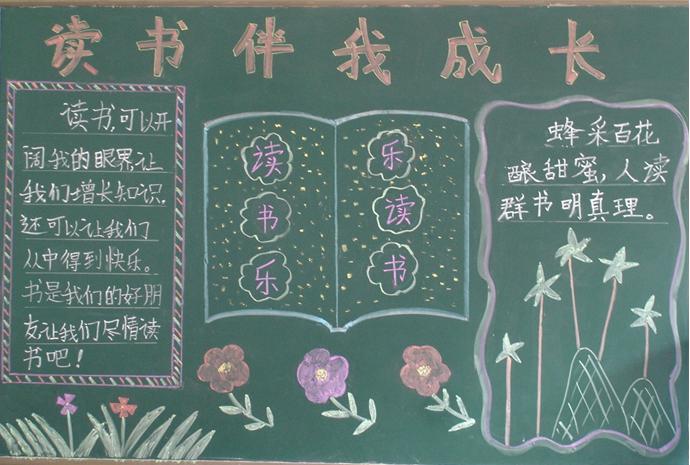 读书伴我成长
读书,可以开
阔我的眼界让
我们增长知识.
还可以让我们
从中得到快乐。
书是我们的好朋
友让我们尽情读
书吧!
读
书
乐
乐
读
书
蜂采百花
酿甜蜜,人读
群书明真理。